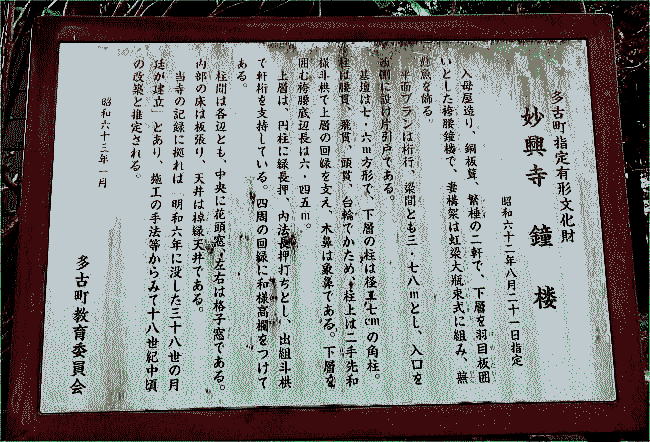 多古町指定有形文化財
妙興寺 鐘楼
昭和六十二年八月二十一日指定
入母屋造り、銅板葺、繁棰の二軒で、下層を羽目板囲
いとした袴腰鐘楼で、妻構架は虹梁大瓶束式に組み、蕪
懸魚を飾る。
平面プランは桁行、梁間とも三・七八mとし、入口を
西側に設け片引戸である。
基壇は七・六m方形で、下層の柱は径 七cmの角柱。
柱は腰貫、飛貫、頭貫、台輪でかため、柱上は二手先和
様斗栱で上層の回縁を支え、木鼻は象鼻である。下層を
囲む袴腰底辺長は六・四五m。
上層は、円柱に縁長押、内法長押打ちとし、出組斗栱
で軒桁を支持している。四周の回縁に和様高欄をつけて
ある。
柱間は各辺とも、中央に花頭窓、左右は格子窓である。
内部の床は板張り、天井は棹縁天井である。
当寺の記録に拠れは 明和六年に没した三十八世の月
廷が建立」とあり、施工の手法等からみて十八世紀中頃
の改築と推定される。
昭和六十三年一月
多古町教育委員会